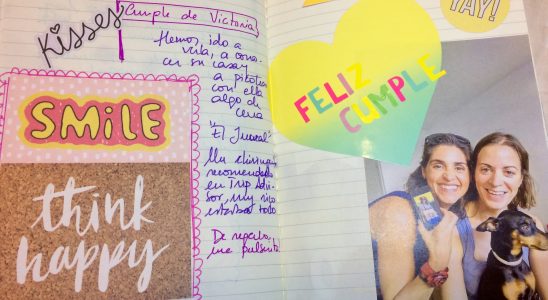 Kisses
Cumple de Victoria
Hemos ido a
verla, a cenar
en su casa y
a picotear
con ella
algo de
cena
SMiLE
"El
Un chiringuito
recomendado
en Trip Advi-
sor, muy rico
estaba todo
think
happy
De regalo,
una pulserita
FELIZ
CUMPLE
YAY!